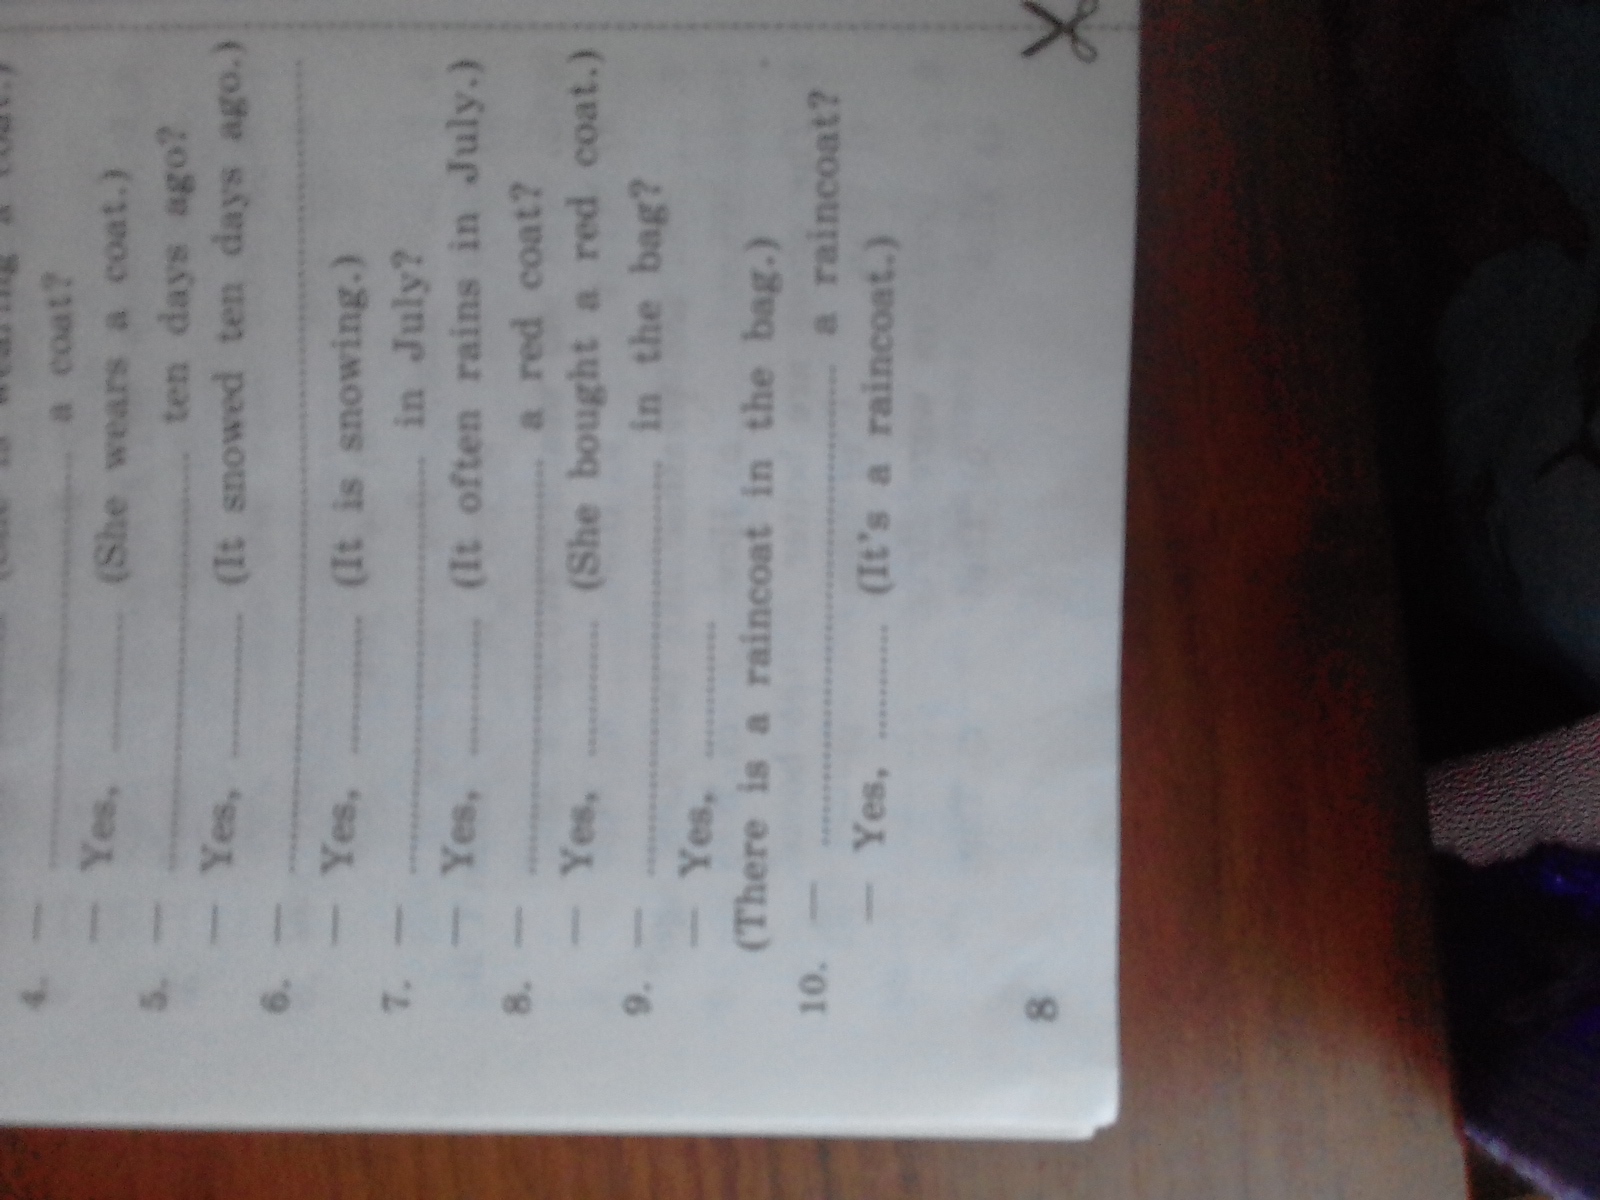 4. — .......... a coat?
— Yes, .......... (She wears a coat.)
5. — .......... ten days ago?
— Yes, .......... (It snowed ten days ago.)
6. — ..........
— Yes, .......... (It is snowing.)
7. — .......... in July?
— Yes, .......... (It often rains in July.)
8. — .......... a red coat?
— Yes, .......... (She bought a red coat.)
9. — .......... in the bag?
— Yes, ..........
(There is a raincoat in the bag.)
10. — .......... a raincoat?
— Yes, .......... (It's a raincoat.)
8